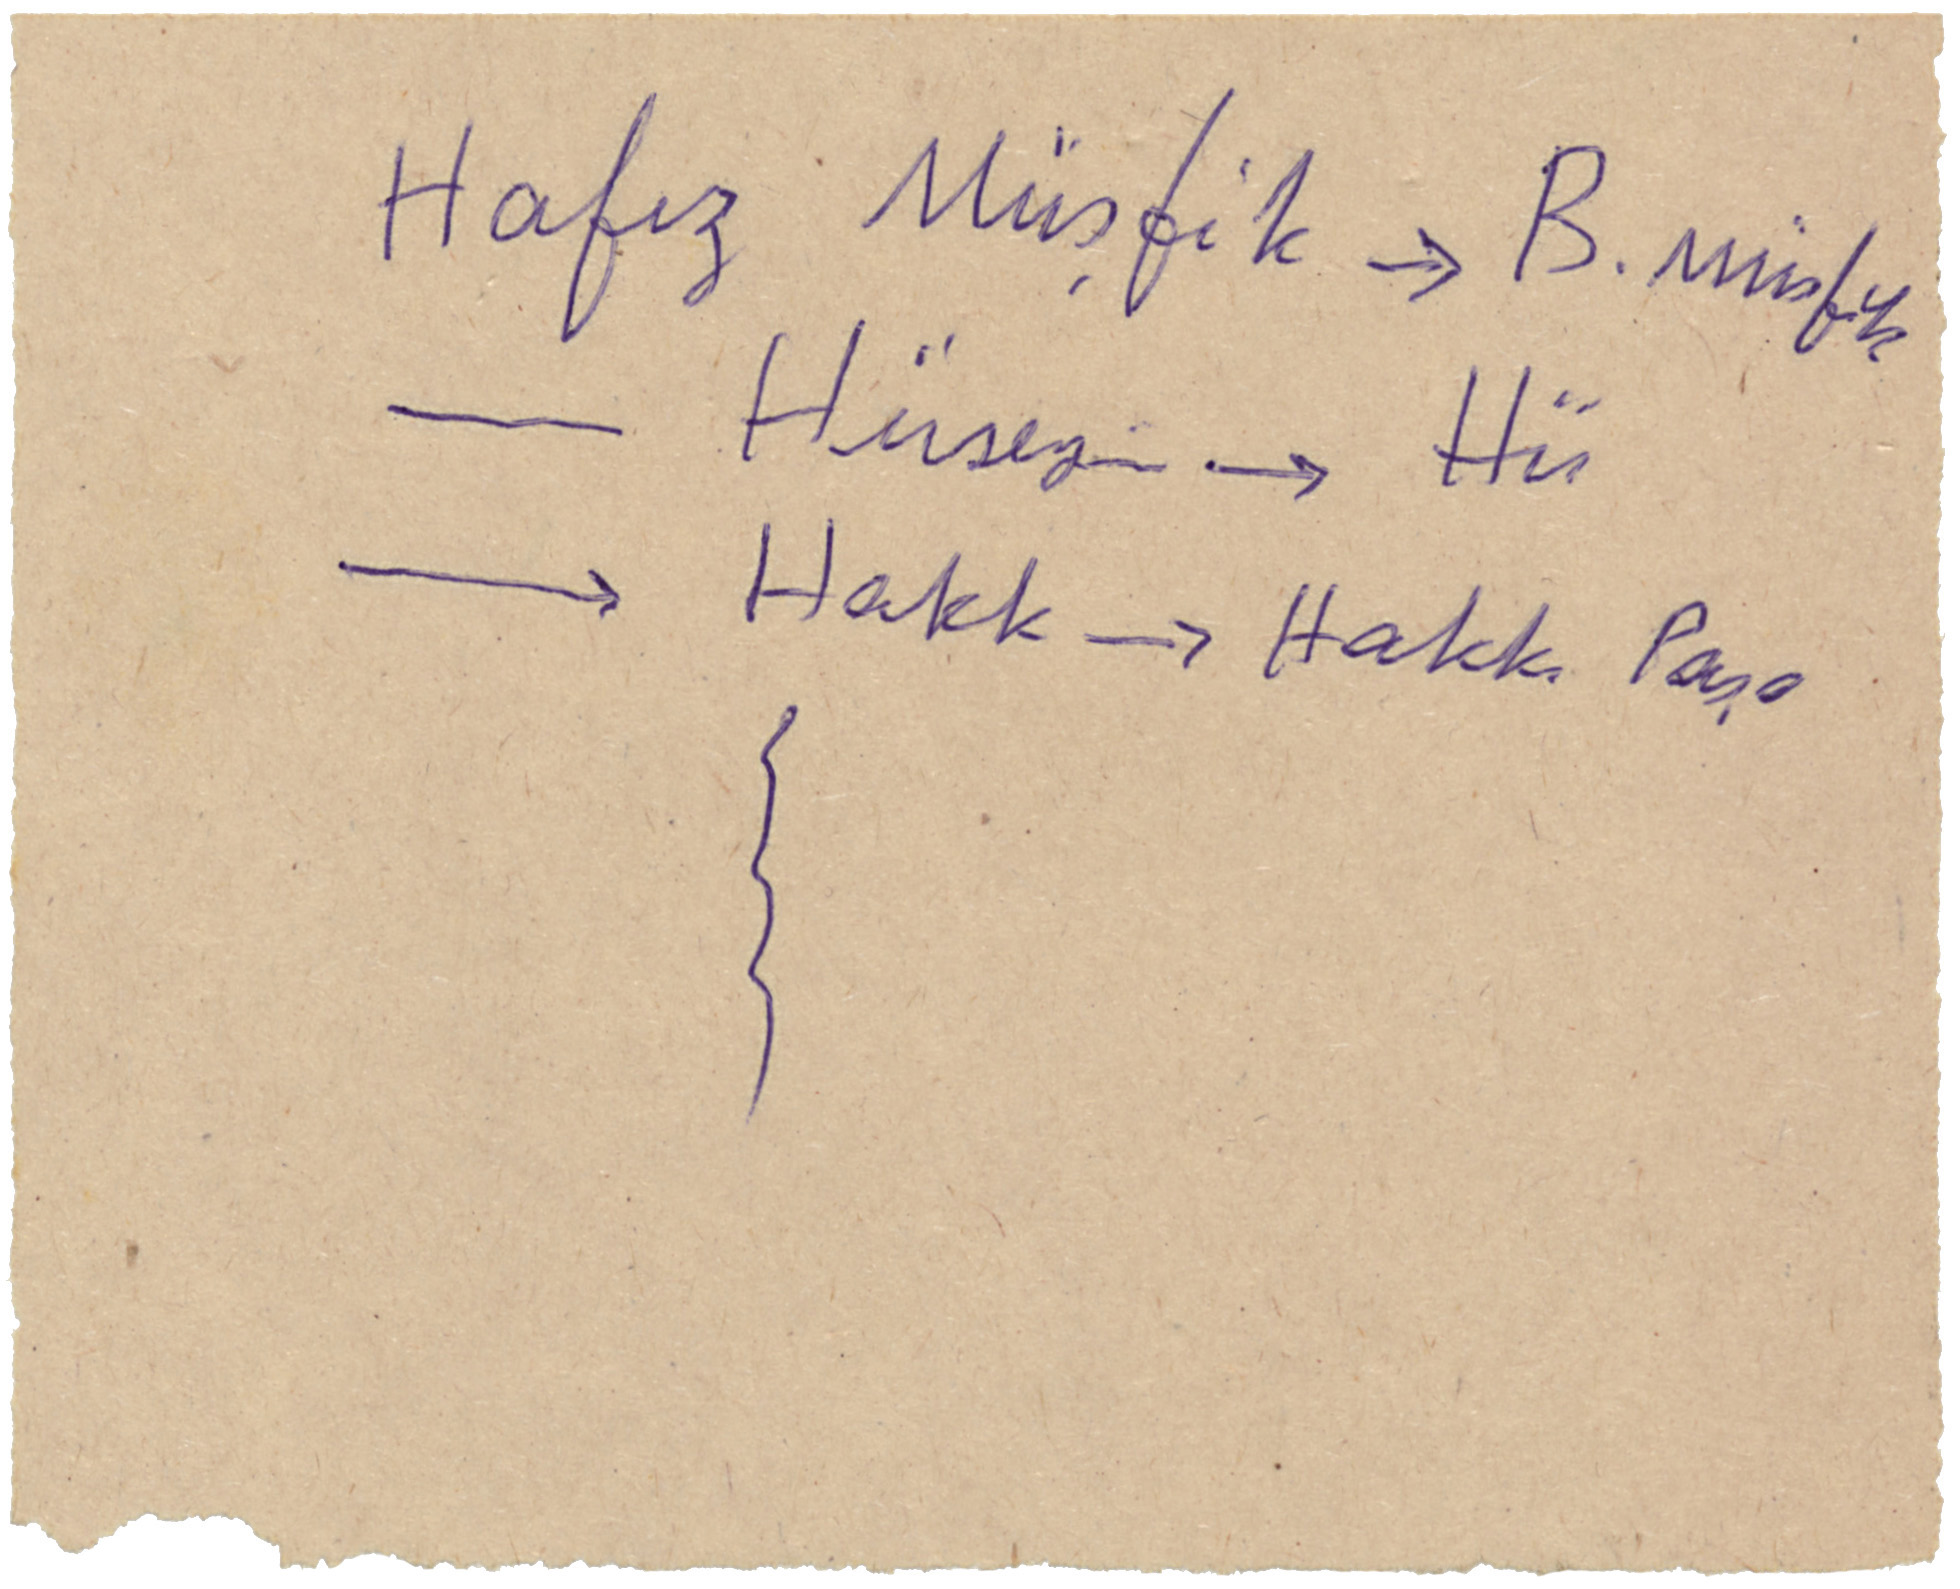 Hafız Müşfik → B. Müşfik
— Hüseyin → Hü
→ Hakk → Hakk. Paşa